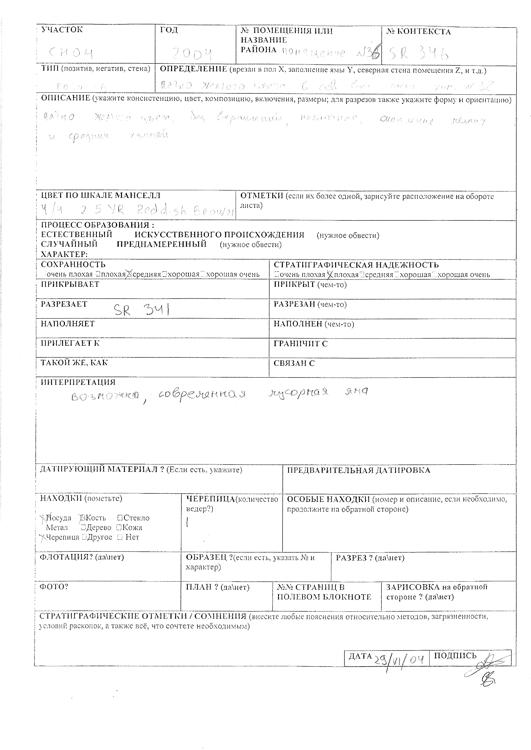 УЧАСТОК ГОД № ПОМЕЩЕНИЯ ИЛИ № КОНТЕКСТА
CHO4 2004 НАЗВАНИЕ
РАЙОНА помещение N36 SR 346
ТИП (позитив, негатив, стена) ОПРЕДЕЛЕНИЕ (врезан в пол X, заполнение ямы Y, северная стена помещения Z, и т.д.)
ОПИСАНИЕ (укажите консистенцию, цвет, композицию, включения, размеры; для разрезов также укажите форму и ориентацию)
и средних камней
ЦВЕТ ПО ШКАЛЕ МАНСЕЛЛ ОТМЕТКИ (если их более одной, зарисуйте расположение на обороте
4/4 2.5 YR Reddish Brown листа)
ПРОЦЕСС ОБРАЗОВАНИЯ :
ЕСТЕСТВЕННЫЙ ИСКУССТВЕННОГО ПРОИСХОЖДЕНИЯ (нужное обвести)
СЛУЧАЙНЫЙ ПРЕДНАМЕРЕННЫЙ (нужное обвести)
ХАРАКТЕР:
СОХРАННОСТЬ СТРАТИГРАФИЧЕСКАЯ НАДЕЖНОСТЬ
очень плохая □плохая средняя □хорошая □хорошая очень □очень плохая плохая □средняя □хорошая □хорошая очень
ПРИКРЫВАЕТ ПРИКРЫТ (чем-то)
РАЗРЕЗАЕТ SR 341 РАЗРЕЗАН (чем-то)
НАПОЛНЯЕТ НАПОЛНЕН (чем-то)
ПРИЛЕГАЕТ К ГРАНИЧИТ С
ТАКОЙ ЖЕ, КАК СВЯЗАН С
ИНТЕРПРЕТАЦИЯ
возможно, современная мусорная яма
ДАТИРУЮЩИЙ МАТЕРИАЛ ? (Если есть, укажите) ПРЕДВАРИТЕЛЬНАЯ ДАТИРОВКА
НАХОДКИ (пометьте) ЧЕРЕПИЦА(количество ОСОБЫЕ НАХОДКИ (номер и описание, если необходимо,
ведер?) продолжите на обратной стороне)
Посуда Кость □Стекло 1
Метал □Дерево □Кожа
Черепица □Другое □ Нет
ФЛОТАЦИЯ? (да\нет) ОБРАЗЕЦ ?(если есть, указать № и РАЗРЕЗ ? (да\нет)
характер)
ФОТО? ПЛАН ? (да\нет) №№ СТРАНИЦ В ЗАРИСОВКА на обратной
ПОЛЕВОМ БЛОКНОТЕ стороне ? (да\нет)
СТРАТИГРАФИЧЕСКИЕ ОТМЕТКИ / СОМНЕНИЯ (внесите любые пояснения относительно методов, загрязненности,
условий раскопок, а также всё, что сочтете необходимым)
ДАТА 29/VI/04 ПОДПИСЬ